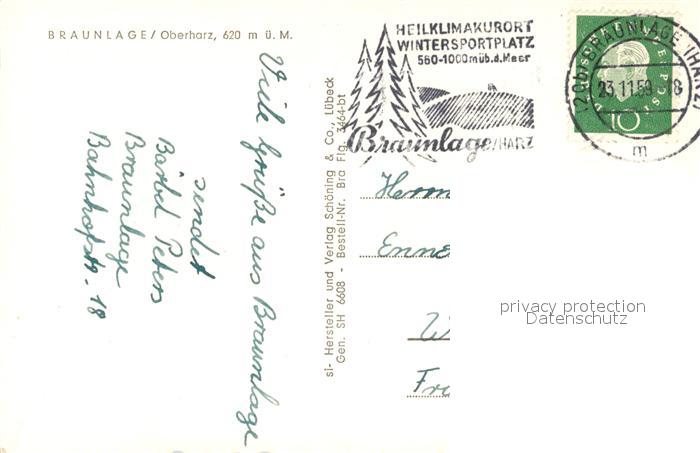 BRAUNLAGE/Oberharz, 620 m ü. M.
Viele Grüße aus Braunlage
sendet
Bärbel Peters
Braunlage
Bahnhofstr. 18
si- Hersteller und Verlag Schöning & Co., Lübeck
Gen. SH 6608 - Bestell-Nr. Bra Flg. 3464-bt
HEILKLIMAKURORT
WINTERSPORTPLATZ
560-1000 m üb. d. Meer
Braunlage/HARZ
(20b) BRAUNLAGE (HARZ
23.11.59 - 8
m
10
Herrn
Enne
privacy protection
Datenschutz